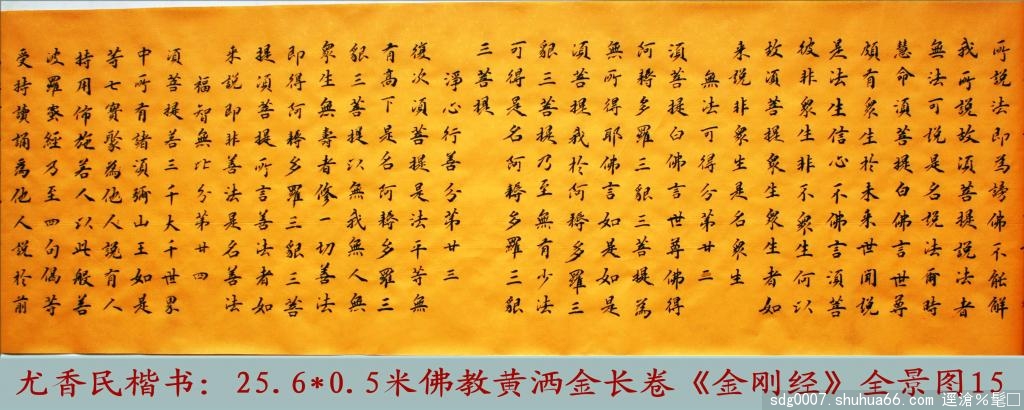 所說法即為謗佛不能解
我所說故須菩提說法者
無法可說是名說法爾時
慧命須菩提白佛言世尊
頗有眾生於未來世聞說
是法生信心不佛言須菩
彼非眾生非不眾生何以
故須菩提眾生眾生者如
來說非眾生是名眾生
無法可得分第廿二
須菩提白佛言世尊佛得
阿耨多羅三藐三菩提為
無所得耶佛言如是如是
須菩提我於阿耨多羅三
藐三菩提乃至無有少法
可得是名阿耨多羅三藐
三菩提
淨心行善分第廿三
復次須菩提是法平等無
有高下是名阿耨多羅三
藐三菩提以無我無人無
眾生無壽者修一切善法
即得阿耨多羅三藐三菩
提須菩提所言善法者如
來說即非善法是名善法
福智無比分第廿四
須菩提若三千大千世界
中所有諸須彌山王如是
等七寶聚為他人說有人
持用佈施若人以此般若
波羅蜜經乃至四句偈等
受持讀誦為他人說於前
尤香民楷书：25.6*0.5米佛教黄洒金长卷《金刚经》全景图15
sdg0007.shuhua66.com